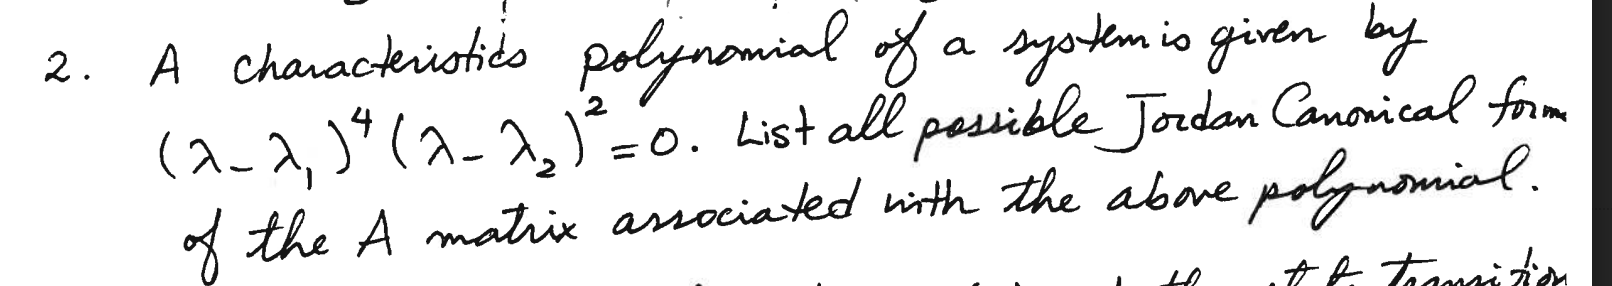 2. A characteristics polynomial of a system is given by
(λ-λ₁)⁴(λ-λ₂)²=0. List all possible Jordan Canonical form
of the A matrix associated with the above polynomial.
transition